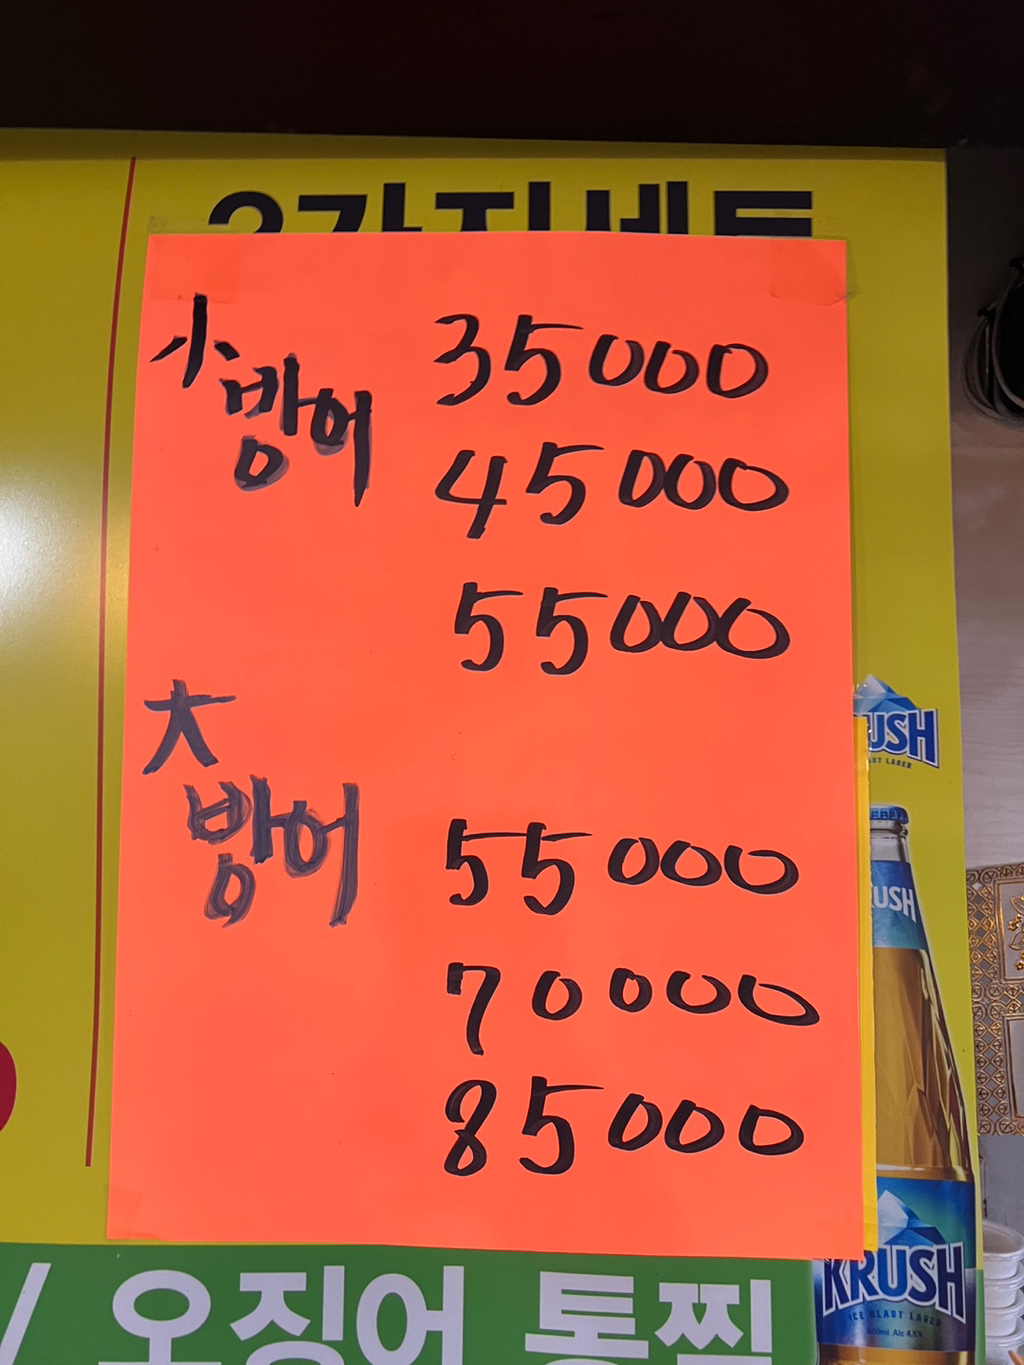 2가지세트
小
방어
35000
45000
55000
大
방어
55000
70000
85000
KRUSH
KRUSH
KRUSH
ICE BLAST LAGER
500ml Alc 4.5%
/ 오징어 통찜